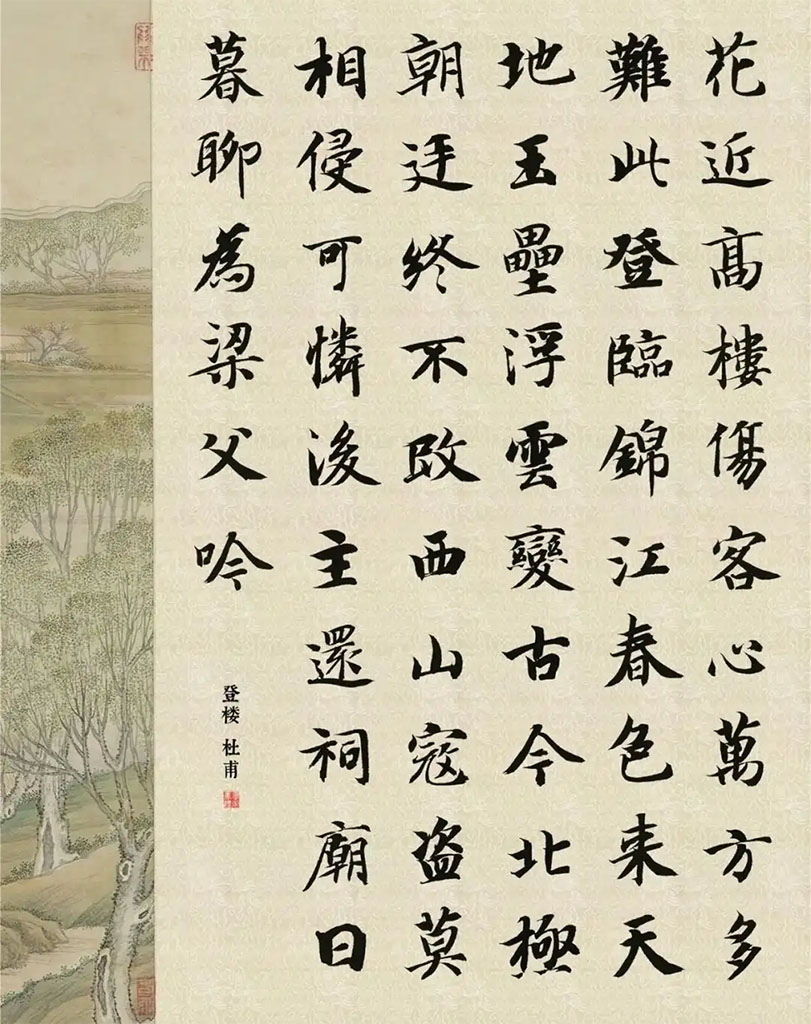 花近高樓傷客心萬方多
難此登臨錦江春色来天
地玉壘浮雲變古今北極
朝廷終不改西山寇盗莫
相侵可憐後主還祠廟日
暮聊為梁父吟
登楼 杜甫